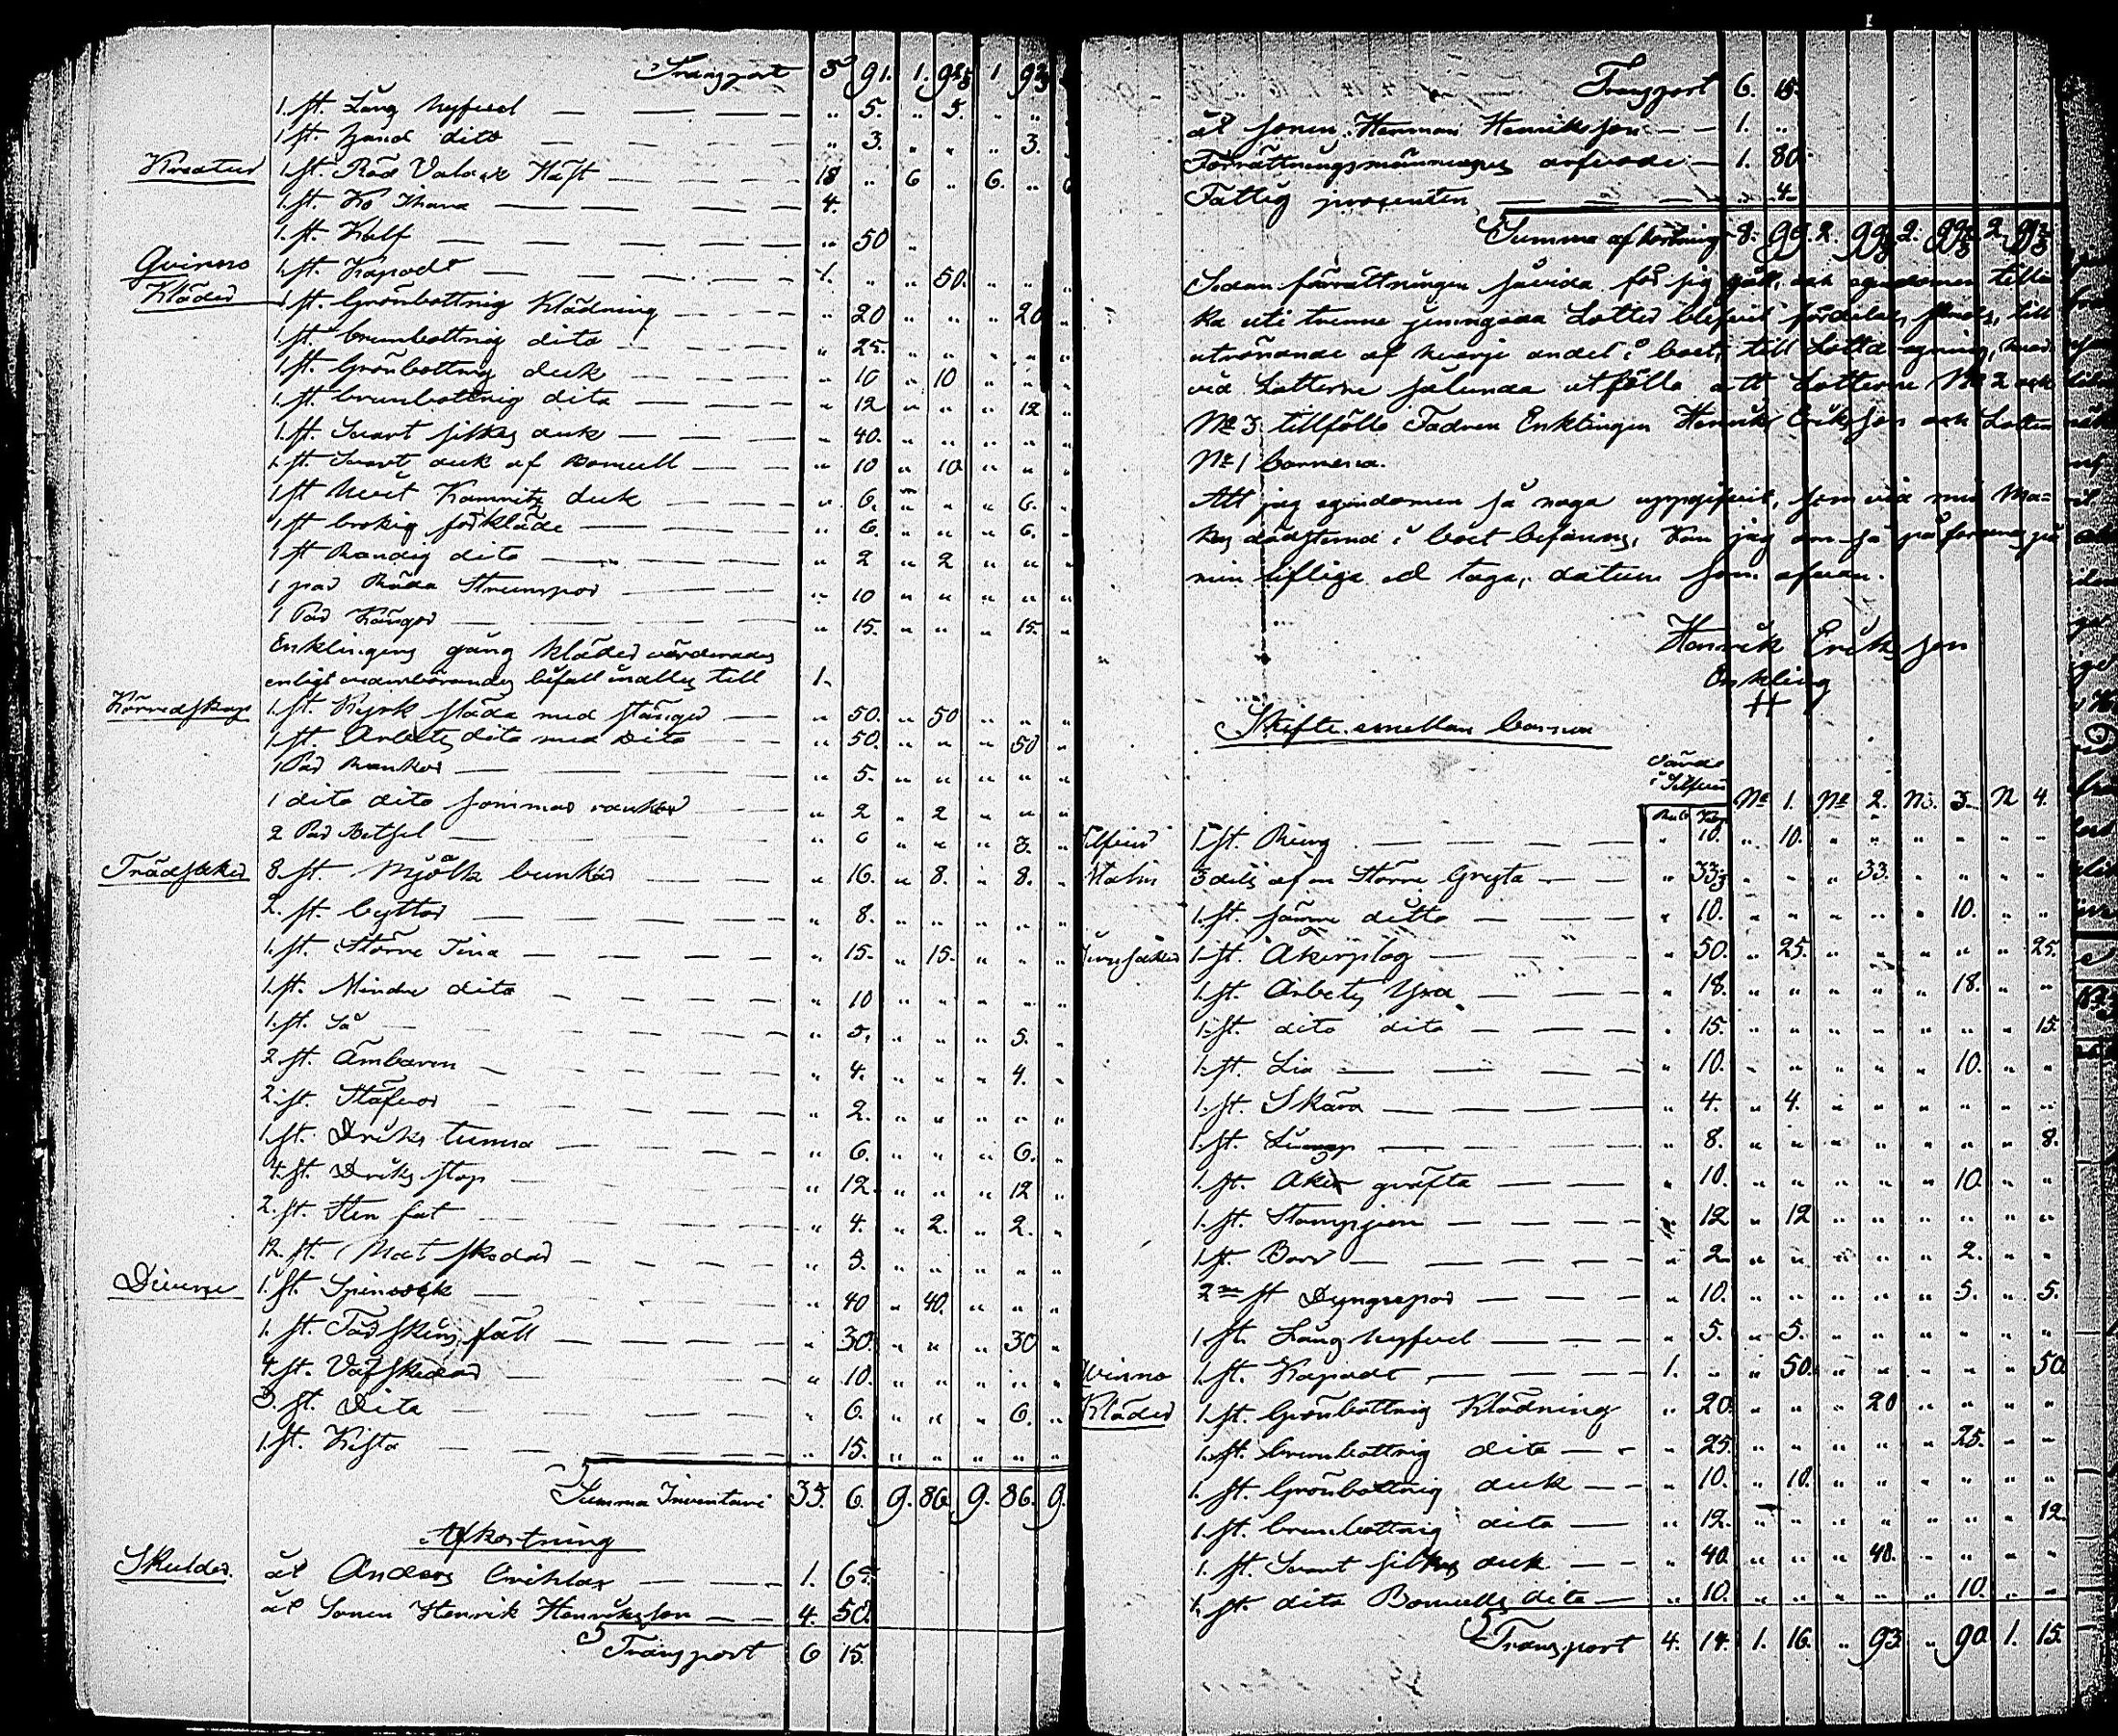 Transport 5 91. 1. 92 1 92
1. st. Lång hyfvel — — — " 5. " 5. " "
1 st. hand dito — — — " 3. " " " 3.
Kreatur 1. st. Röd Valack Häst — — 18 " 6 " 6. " 6
1. st. Ko — — — 4.
1. st. Kalf — — — " 50 "
Qvinno 1. st. Kapott — — — 1. " " 50. " "
Kläder 1 st. Grönbottnig Klädning — — " 20 " " " 20 "
1 st. brunbottnig dito — — " 25. " " " "
1 st. Grönbottnig duk — — " 10 " 10 " "
1 st. brunbottnig dito — — " 12 " " " 12 "
1 st. Svart silkes duk — — " 40. " " " "
1. st. Svart duk af Bomull — — " 10 " 10 " "
1 st hvit duk — — " 6. " " " 6.
1 st brokig förkläde — — " 6. " " " 6.
1 st Randig dito — — " 2 " 2 " "
1 par Röda Strumpor — — " 10 " " " "
1 Par Kängor — — " 15. " " " 15.
Enklingens gång kläder värderades
enligt vederbörandes befallande till 1.
Körredskap 1. st. Kyrk släda med stänger — " 50. " 50 " "
1. st. Arbets dito med Dito — " 50. " " " 50 "
1 Par Rankor — — " 5. " " " "
1 dito dito sommar rankor — " 2 " 2 " "
2 Par Betsel — — " 6 " " " 3. "
Trädsaker 8. st. Mjölk bunkar — — " 16. " 8. " 8. "
2. st. byttor — — " 8. " " " "
1. st. Större Tina — — " 15. " 15. " "
1. st. Mindre dito — — " 10 " " " "
1. st. Så — — " 5. " " " 5. "
2 st. Ämbaren — — " 4. " " " 4. "
2. st. Stäfvor — — " 2. " " " "
1. st. Driks tunna — — " 6. " " " 6. "
4. st. Driks stop — — " 12. " " " 12 "
2. st. Sten fat — — " 4. " 2. " 2. "
12. st. Mat skedar — — " 3. " " " "
Diverse 1. st. Spinrock — — " 40 " 40. " "
1. st. Fårskins fäll — — " 30. " " " 30 "
4. st. Väfskedar — — " 10. " " " "
3. st. Dito — — " 6. " " " 6. "
1. st. Kista — — " 15. " " " "
Summa Inventarii 35. 6. 9. 86. 9. 86. 9.
Afkortning
Skulder. åt Anders — — 1. 65
åt Sonen Henrik Henriksson — — 4. 50.
Transport 6 15.
Transport 6. 15.
åt sonen Herman Henriksson — — 1. "
Förrättningsmännernes arfvode — 1. 80.
Fattig procenten — — " 4.
Summa afkortning 8. 99. 2. 99 2. 99 2. 99
Sedan förrättningen såvida för sig gått, och egendomen
uti trenne jemngoda Lotter blifvit fördelas, till
utrönande af hvarje andel i boet, till
vid Lotterne sålunda utfölle att Lotterne No 2 och
No 3 tillfölle Fadren Enklingen Henrik Eriksson och Lotten
No 1 barnena.
Att jag egendomen så noga uppgifvit, som vid min Ma=
kas dödstimma i boet befanns, kan jag om så påfordras på
min lifliga ed taga, datum som ofvan.
Henrik Eriksson
Enkling
Skifte emellan barnen
Värde i Silfver
Rub. Kop. No 1. No 2. No. 3. N 4.
1. st. Ring — — " 10. " 10. " " " " " "
Malm 3 dels af en Större Gryta — — " 33 " " " 33. " " " "
1. st. ditto — — " 10. " " " " " 10. " "
1. st. Åkerplog — — " 50. " 25. " " " " " 25.
1. st. Arbets Yxa — — " 18. " " " " " 18. " "
1. st. dito dito — — " 15. " " " " " " " 15.
1. st. Lia — — " 10. " " " " " 10. " "
1. st. Skära — — " 4. " 4. " " " " " "
1. st. — — " 8. " " " " " " " 8.
1. st. Åker gräfta — — " 10. " " " " " 10. " "
1. st. Stampjern — — " 12 " 12 " " " " " "
1 st. Borr — — " 2 " " " " " 2. " "
2ne st Dyngrepor — — " 10. " " " " " 5. " 5.
1 st. Lång hyfvel — — " 5. " 5. " " " " " "
1. st. Kapott — — 1. " " 50. " " " " " 50
Kläder 1. st. Grönbottnig Klädning " 20. " " " 20 " " " "
1. st. brunbottnig dito — — " 25. " " " " " 25. " "
1. st. Grönbottnig duk — — " 10. " 10. " " " " " "
1. st. brunbottnig dito — — " 12. " " " " " " " 12.
1. st. Svart silkes duk — — " 40 " " " 40. " " " "
1. st. dito Bomulls dito — — " 10. " " " " " 10. " "
Transport 4. 14. 1. 16. " 93. " 90. 1. 15.